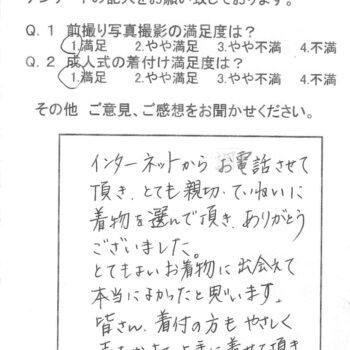 アンケートの記入をお願い致しております。
Q. 1 前撮り写真撮影の満足度は？
1.満足 2.やや満足 3.やや不満 4.不満
Q. 2 成人式の着付け満足度は？
1.満足 2.やや満足 3.やや不満 4.不満
その他 ご意見、ご感想をお聞かせください。
インターネットから お電話させて
頂き、とても親切、ていねいに
着物を選んで頂き、ありがとう
ございました。
とてもよいお着物に出会えて
本当によかったと思います。
皆さん、着付の方も やさしく
上手に着せて頂き